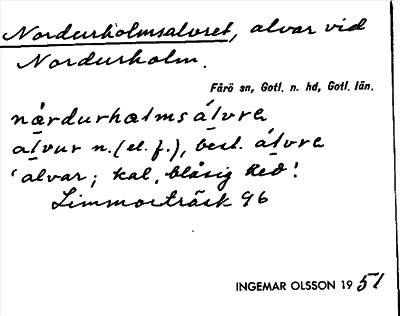 Nordurholmsalvret, alvar vid
Nordurholm.
Fårö sn, Gotl. n. hd, Gotl. län.
nårdurhælmsálvrę
alvur n. (el. f.), best. álvrę
'alvar; kal, blåsig hed'.
Limmorträsk 96
INGEMAR OLSSON 1951